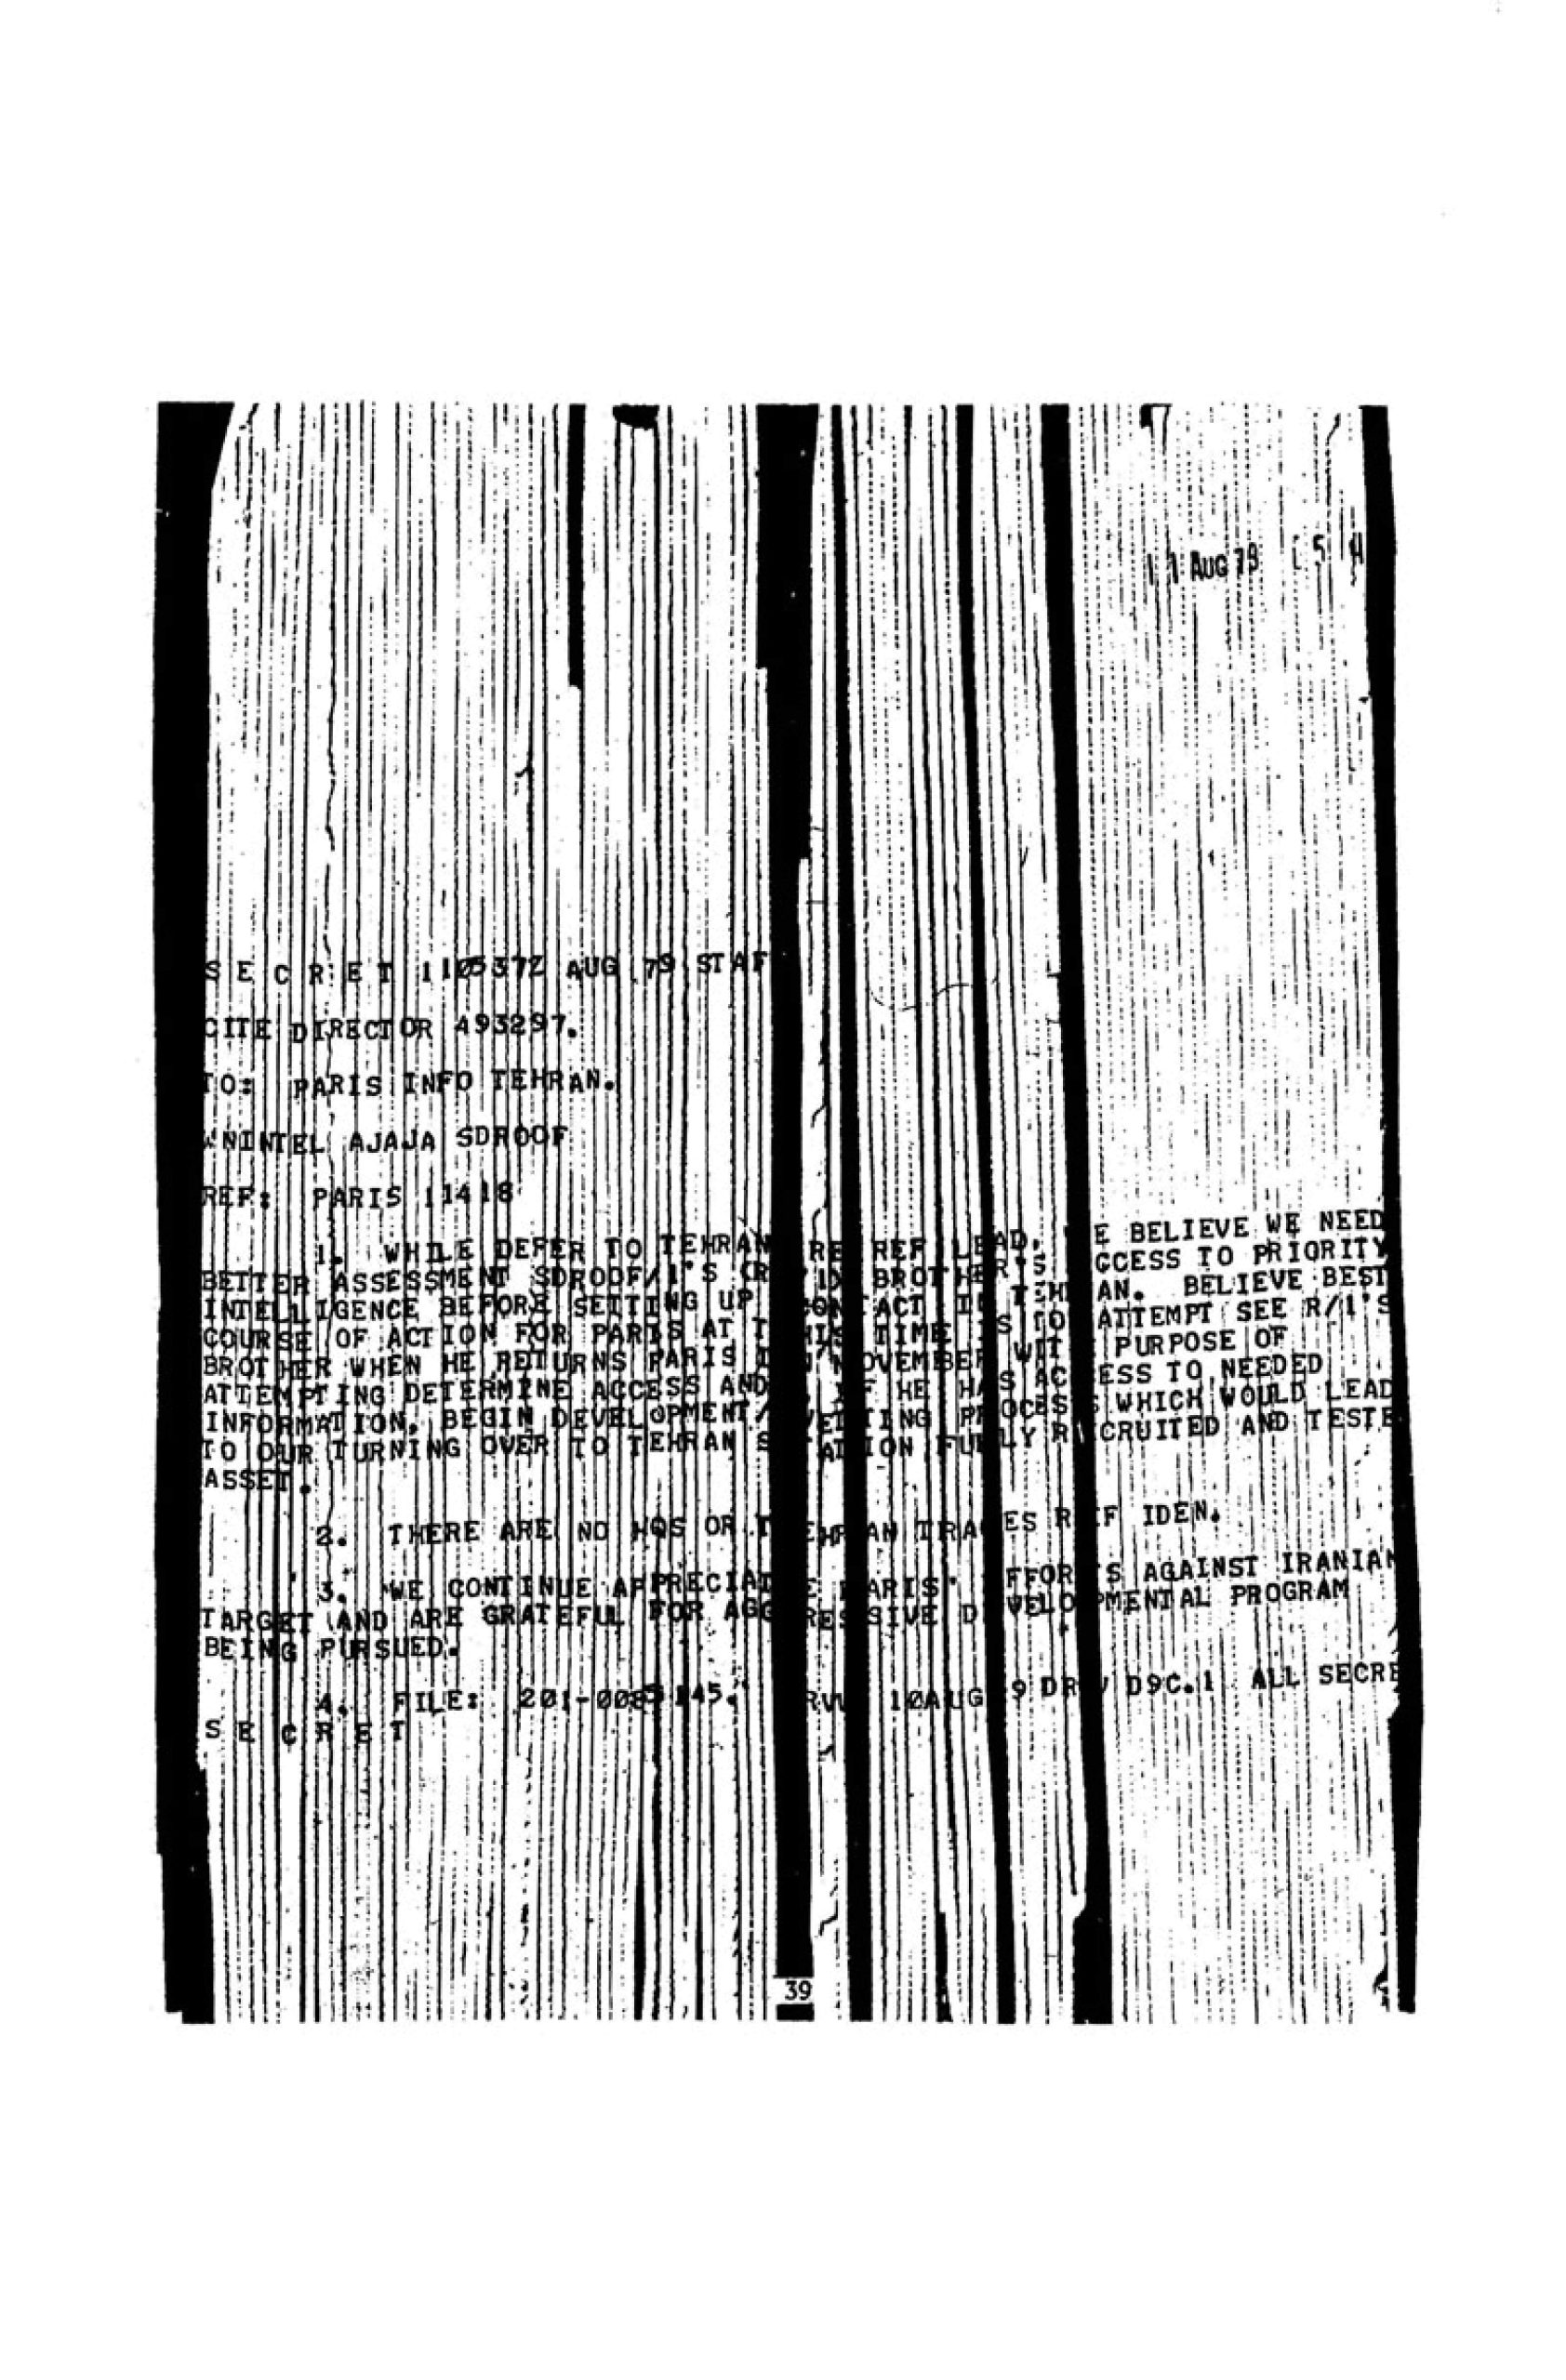 11 AUG 79
S E C R E T 110537Z AUG 79 STAF
CITE DIRECTOR 493297.
TO: PARIS INFO TEHRAN.
WNINTEL AJAJA SDROOF
REF: PARIS 11418
1. WHILE DEFER TO TEHRAN RE REF LEAD, WE BELIEVE WE NEED
BETTER ASSESSMENT SDROOF/1'S BROTHER'S ACCESS TO PRIORITY
INTELLIGENCE BEFORE SETTING UP CONTACT IN TEHRAN. BELIEVE BEST
COURSE OF ACTION FOR PARIS AT THIS TIME IS TO ATTEMPT SEE R/1'S
BROTHER WHEN HE RETURNS PARIS IN NOVEMBER WITH PURPOSE OF
ATTEMPTING DETERMINE ACCESS AND, IF HE HAS ACCESS TO NEEDED
INFORMATION, BEGIN DEVELOPMENT/VETTING PROCESS WHICH WOULD LEAD
TO OUR TURNING OVER TO TEHRAN STATION FULLY RECRUITED AND TESTE
ASSET.
2. THERE ARE NO HQS OR TEHRAN TRACES REF IDEN.
3. WE CONTINUE APPRECIATE PARIS' EFFORTS AGAINST IRANIAN
TARGET AND ARE GRATEFUL FOR AGGRESSIVE DEVELOPMENTAL PROGRAM
BEING PURSUED.
4. FILE: RVW 10AUG 9 DRV D9C.1 ALL SECRE
S E C R E T
39